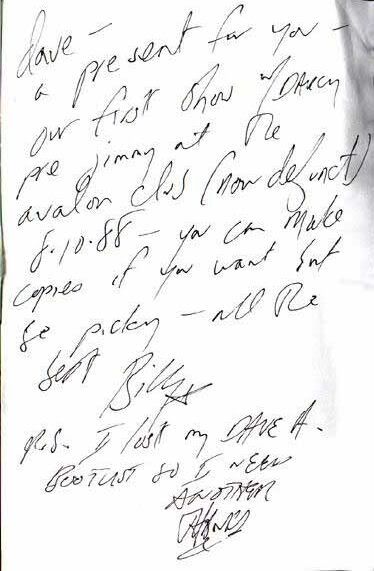 Dave -
a present for you -
our first show w/ DARCY
pre Jimmy at the
avalon club (now defunct)
8.10.88 - you can make
copies if you want but
be picky - all the
best Billy
P.S. I lost my DAVE A.
BOOTLIST SO I NEED
ANOTHER